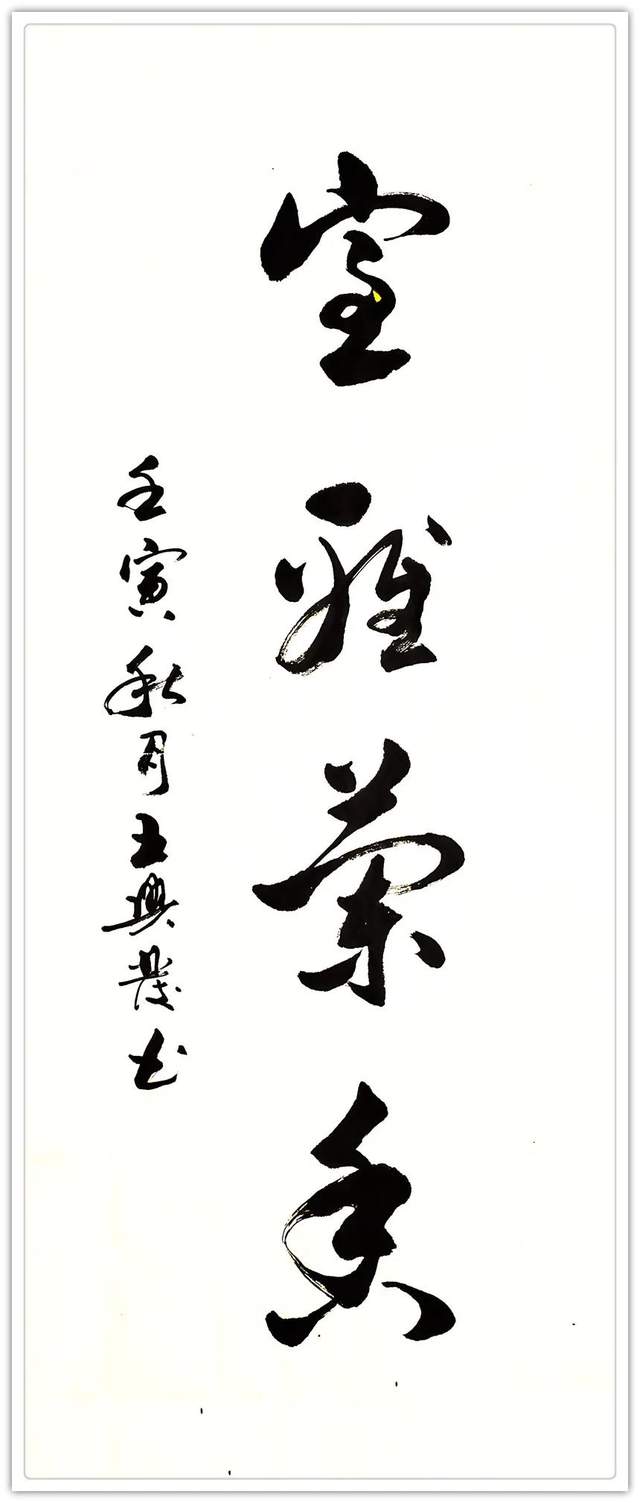 室雅兰香
壬寅秋月王兴发书